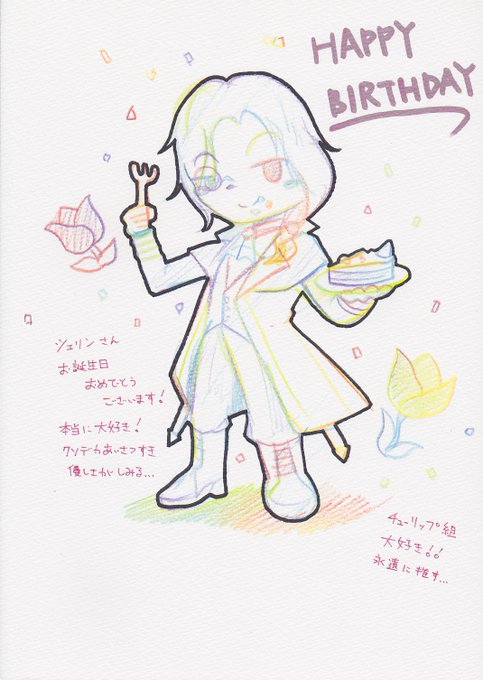 HAPPY
BIRTHDAY
シェリン さん
お誕生日
おめでとう
ございます!
本当に大好き!
クソデカあいさつすき
優しさがしみる...
チューリップ組
大好き!!
永遠に推す...